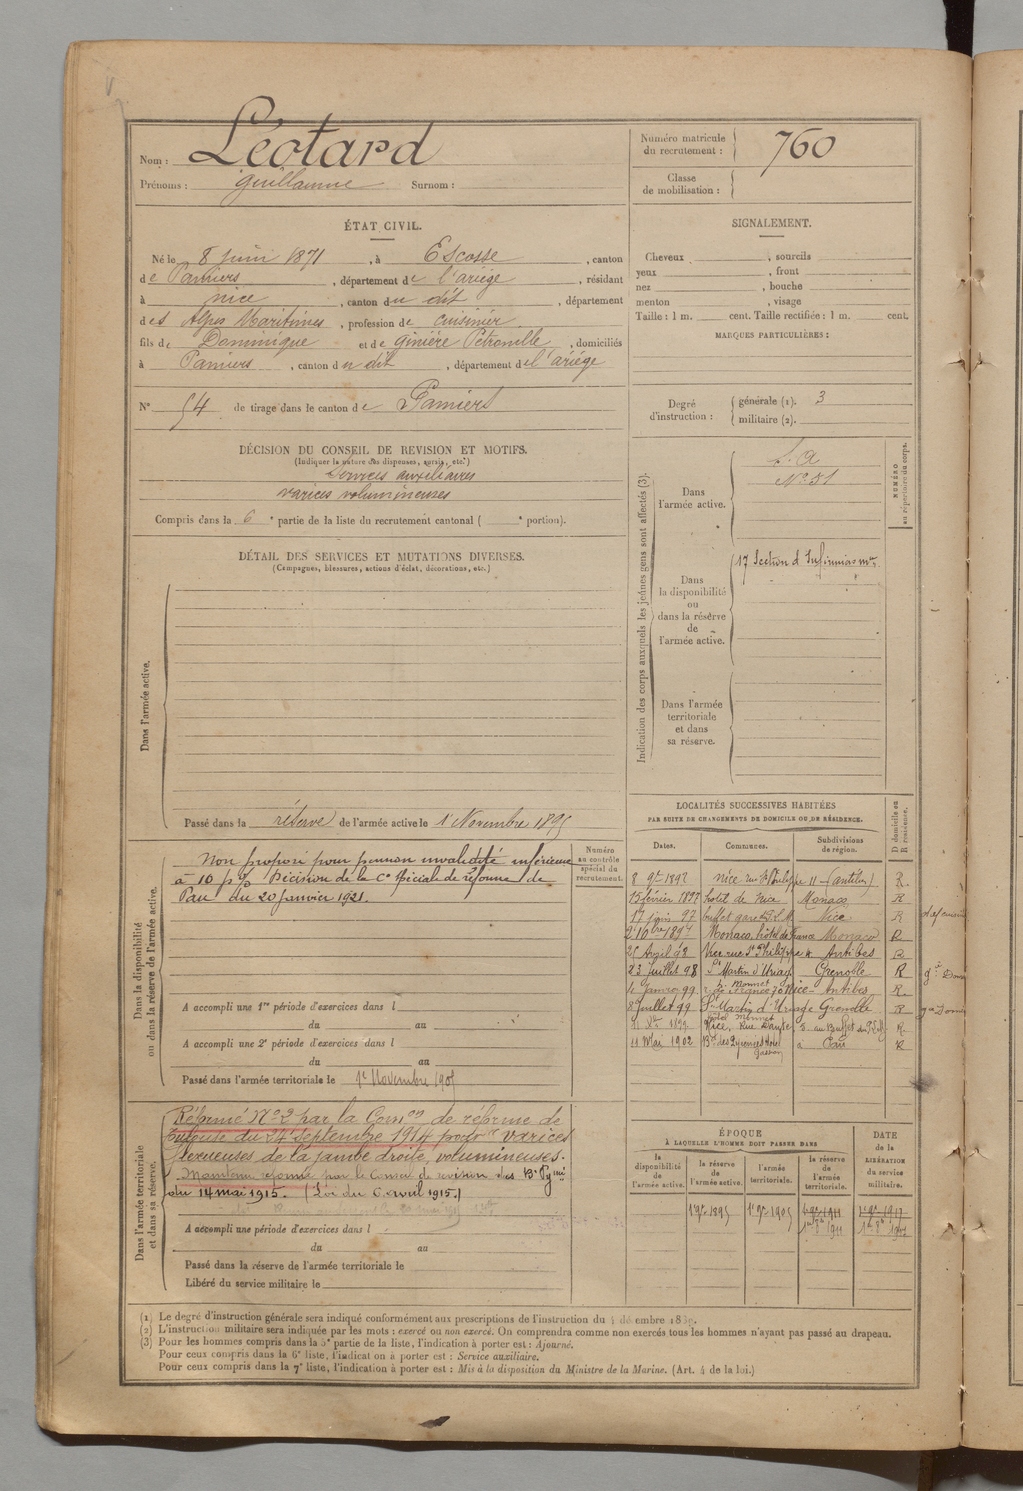 Nom : Léotard
Prénoms : Guillaume Surnom :
Numéro matricule du recrutement : 760
Classe de mobilisation :
ÉTAT CIVIL.
Né le 8 juin 1871, à Escosse, canton
de Pamiers, département de l'ariège, résidant
à nice, canton du dit, département
des Alpes Maritimes, profession de cuisinier
fils de Dominique et de Ginière Pétronille, domiciliés
à Pamiers, canton du dit, département de l'ariège
N° 54 de tirage dans le canton de Pamiers
DÉCISION DU CONSEIL DE REVISION ET MOTIFS.
(Indiquer la nature des dispenses, sursis, etc.)
Services auxiliaires
varices volumineuses
Compris dans la 6e partie de la liste du recrutement cantonal ( e portion).
DÉTAIL DES SERVICES ET MUTATIONS DIVERSES.
(Campagnes, blessures, actions d'éclat, décorations, etc.)
Dans l'armée active.
Passé dans la réserve de l'armée active le 1er Novembre 1895
Dans la disponibilité
ou dans la réserve de l'armée active.
Numéro
au contrôle
spécial du
recrutement.
Non proposé pour pension invalidité inférieure
à 10 p% Décision de la Con spéciale de réforme de
Pau du 20 janvier 1921.
A accompli une 1re période d'exercices dans l
du au
A accompli une 2e période d'exercices dans l
du au
Passé dans l'armée territoriale le 1er Novembre 1905
Dans l'armée territoriale
et dans sa réserve.
Réformé N°2 par la Comon de réforme de
Toulouse du 24 Septembre 1914 pour varices
flexueuses de la jambe droite, volumineuses.
Maintenu réformé par le Conseil de revision des Bses Pyrnées
du 14 mai 1915. (Loi du 6 avril 1915.)
A accompli une période d'exercices dans l
du au
Passé dans la réserve de l'armée territoriale le
Libéré du service militaire le
SIGNALEMENT.
Cheveux , sourcils
yeux , front
nez , bouche
menton , visage
Taille : 1 m. cent. Taille rectifiée : 1 m. cent.
MARQUES PARTICULIÈRES :
Degré d'instruction : générale (1). 3
militaire (2).
Indication des corps auxquels les jeunes gens sont affectés (3).
NUMÉRO
au répertoire du corps.
Dans
l'armée active.
S. A
N° 51
Dans
la disponibilité
ou
dans la réserve
de
l'armée active.
17 Section d'Infirmiers mres
Dans l'armée
territoriale
et dans
sa réserve.
LOCALITÉS SUCCESSIVES HABITÉES
PAR SUITE DE CHANGEMENTS DE DOMICILE OU DE RÉSIDENCE.
Dates. Communes. Subdivisions de région. D domicile ou R résidence.
8 9bre 1892 Nice rue St Philippe 11 (antibes) R.
15 février 1897 hotel de Nice Monaco R
17 juin 97 buffet gare P.L.M. Nice R
1897 Monaco, hôtel de France Monaco R
25 Avril 98 Nice rue St Philippe Antibes R
23 juillet 98 St Martin d'Uriage Grenoble R
janvier 99 Nice Antibes R.
8 juillet 99 St Martin d'Uriage Grenoble R
1899 Nice, R
11 Mai 1902 Bd des Pyrénées Hotel Gassion à Pau R
ÉPOQUE
À LAQUELLE L'HOMME DOIT PASSER DANS
DATE
de la
LIBÉRATION
du service
militaire.
la disponibilité de l'armée active. la réserve de l'armée active. l'armée territoriale. la réserve de l'armée territoriale.
1 9bre 1895 1 9bre 1905 1 9bre 1911 1 9bre 1917
1er 8bre 1911
(1) Le degré d'instruction générale sera indiqué conformément aux prescriptions de l'instruction du 4 décembre 1889.
(2) L'instruction militaire sera indiquée par les mots : exercé ou non exercé. On comprendra comme non exercés tous les hommes n'ayant pas passé au drapeau.
(3) Pour les hommes compris dans la 5e partie de la liste, l'indication à porter est : Ajourné.
Pour ceux compris dans la 6e liste, l'indication à porter est : Service auxiliaire.
Pour ceux compris dans la 7e liste, l'indication à porter est : Mis à la disposition du Ministre de la Marine. (Art. 4 de la loi.)